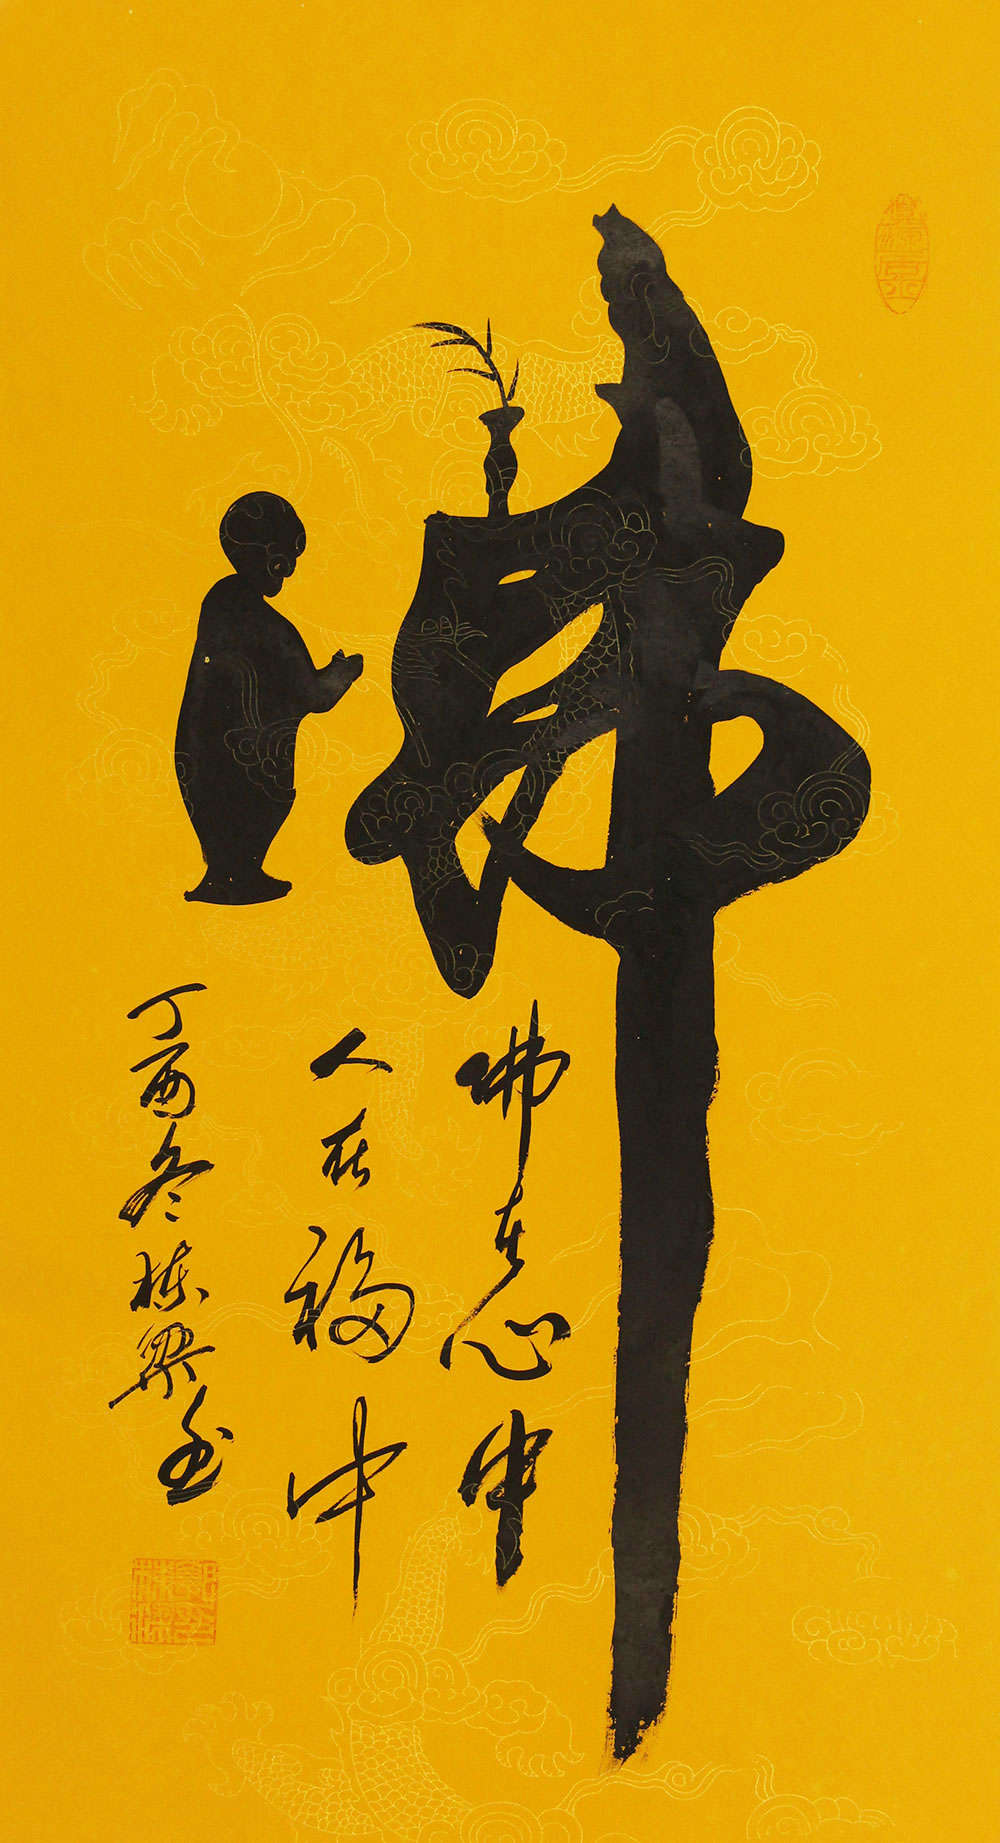 佛
佛在心中
人在福中
丁酉冬栋梁书